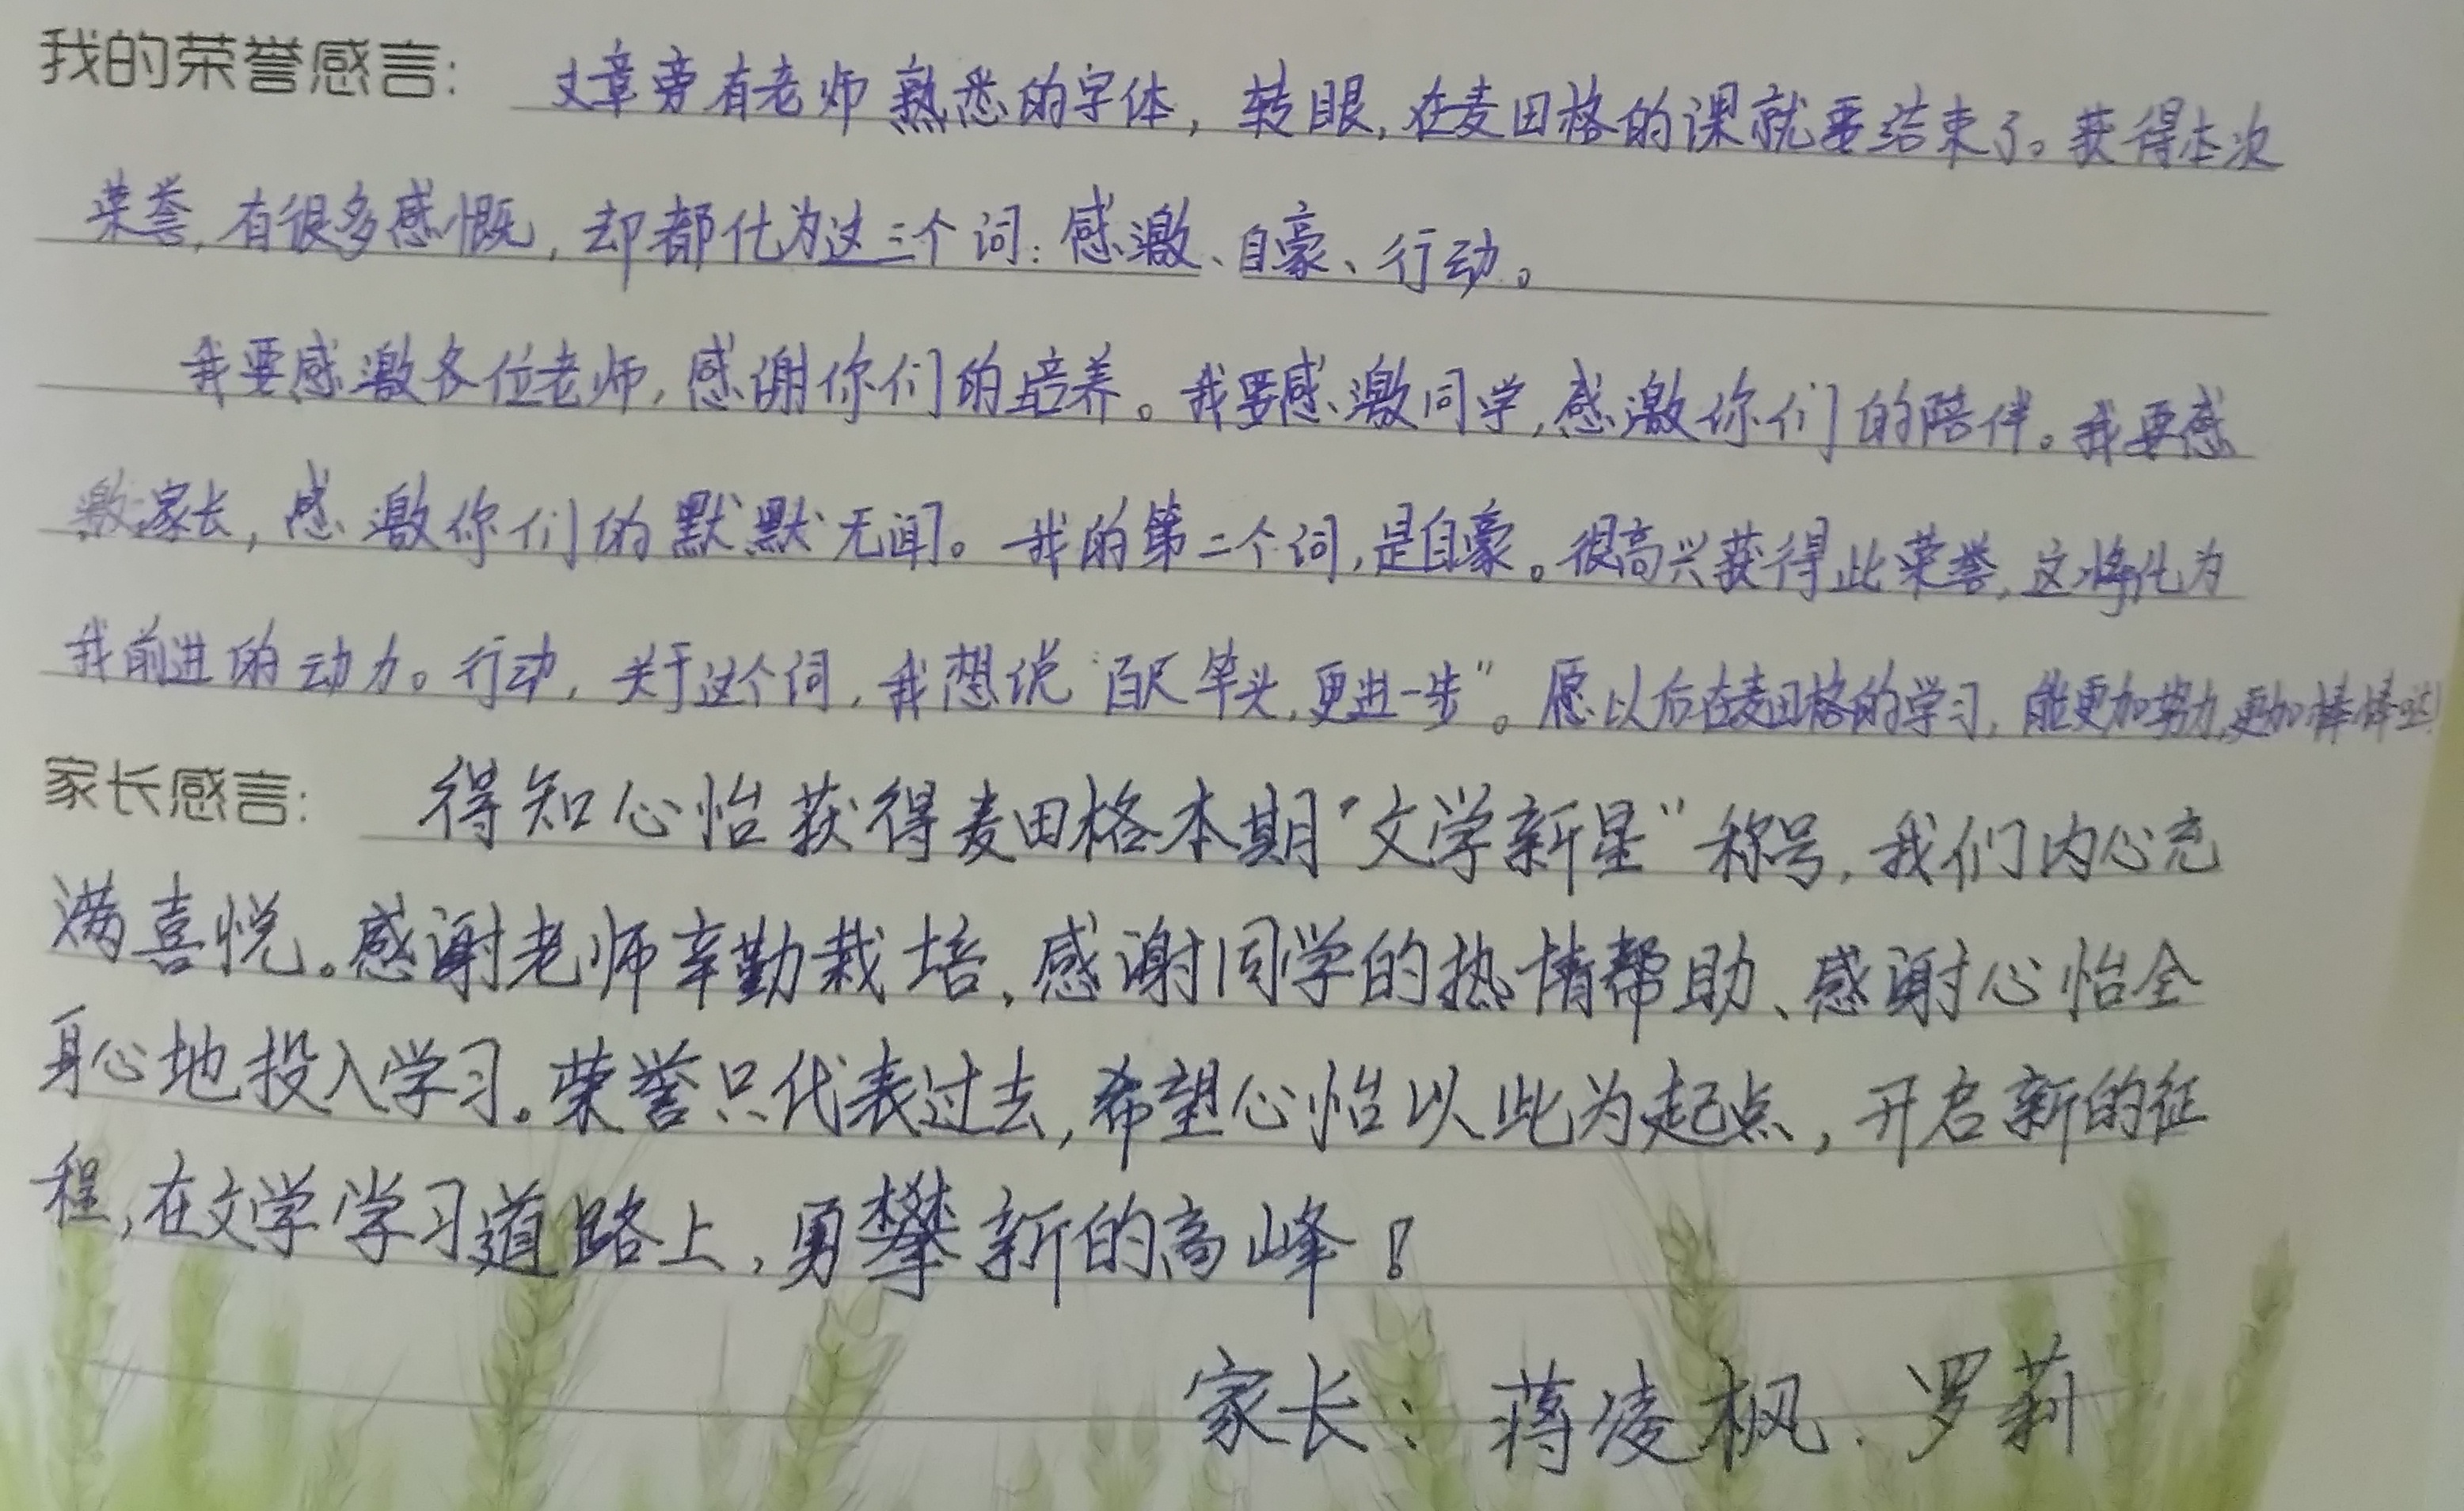 我的荣誉感言: 文章旁有老师熟悉的字体，转眼，在麦田格的课就要结束了。获得本次
荣誉，有很多感慨，却都化为这三个词：感激、自豪、行动。
我要感激各位老师，感谢你们的培养。我要感激同学，感激你们的陪伴。我要感
激家长，感激你们的默默无闻。我的第二个词，是自豪。很高兴获得此荣誉，这将化为
我前进的动力。行动，关于这个词，我想说“百尺竿头，更进一步”。愿以后在麦田格的学习，能更加努力，更加棒棒哒!
家长感言: 得知心怡获得麦田格本期“文学新星”称号，我们内心充
满喜悦。感谢老师辛勤栽培、感谢同学的热情帮助、感谢心怡全
身心地投入学习。荣誉只代表过去，希望心怡以此为起点，开启新的征
程，在文学学习道路上，勇攀新的高峰！
家长：蒋凌枫、罗莉